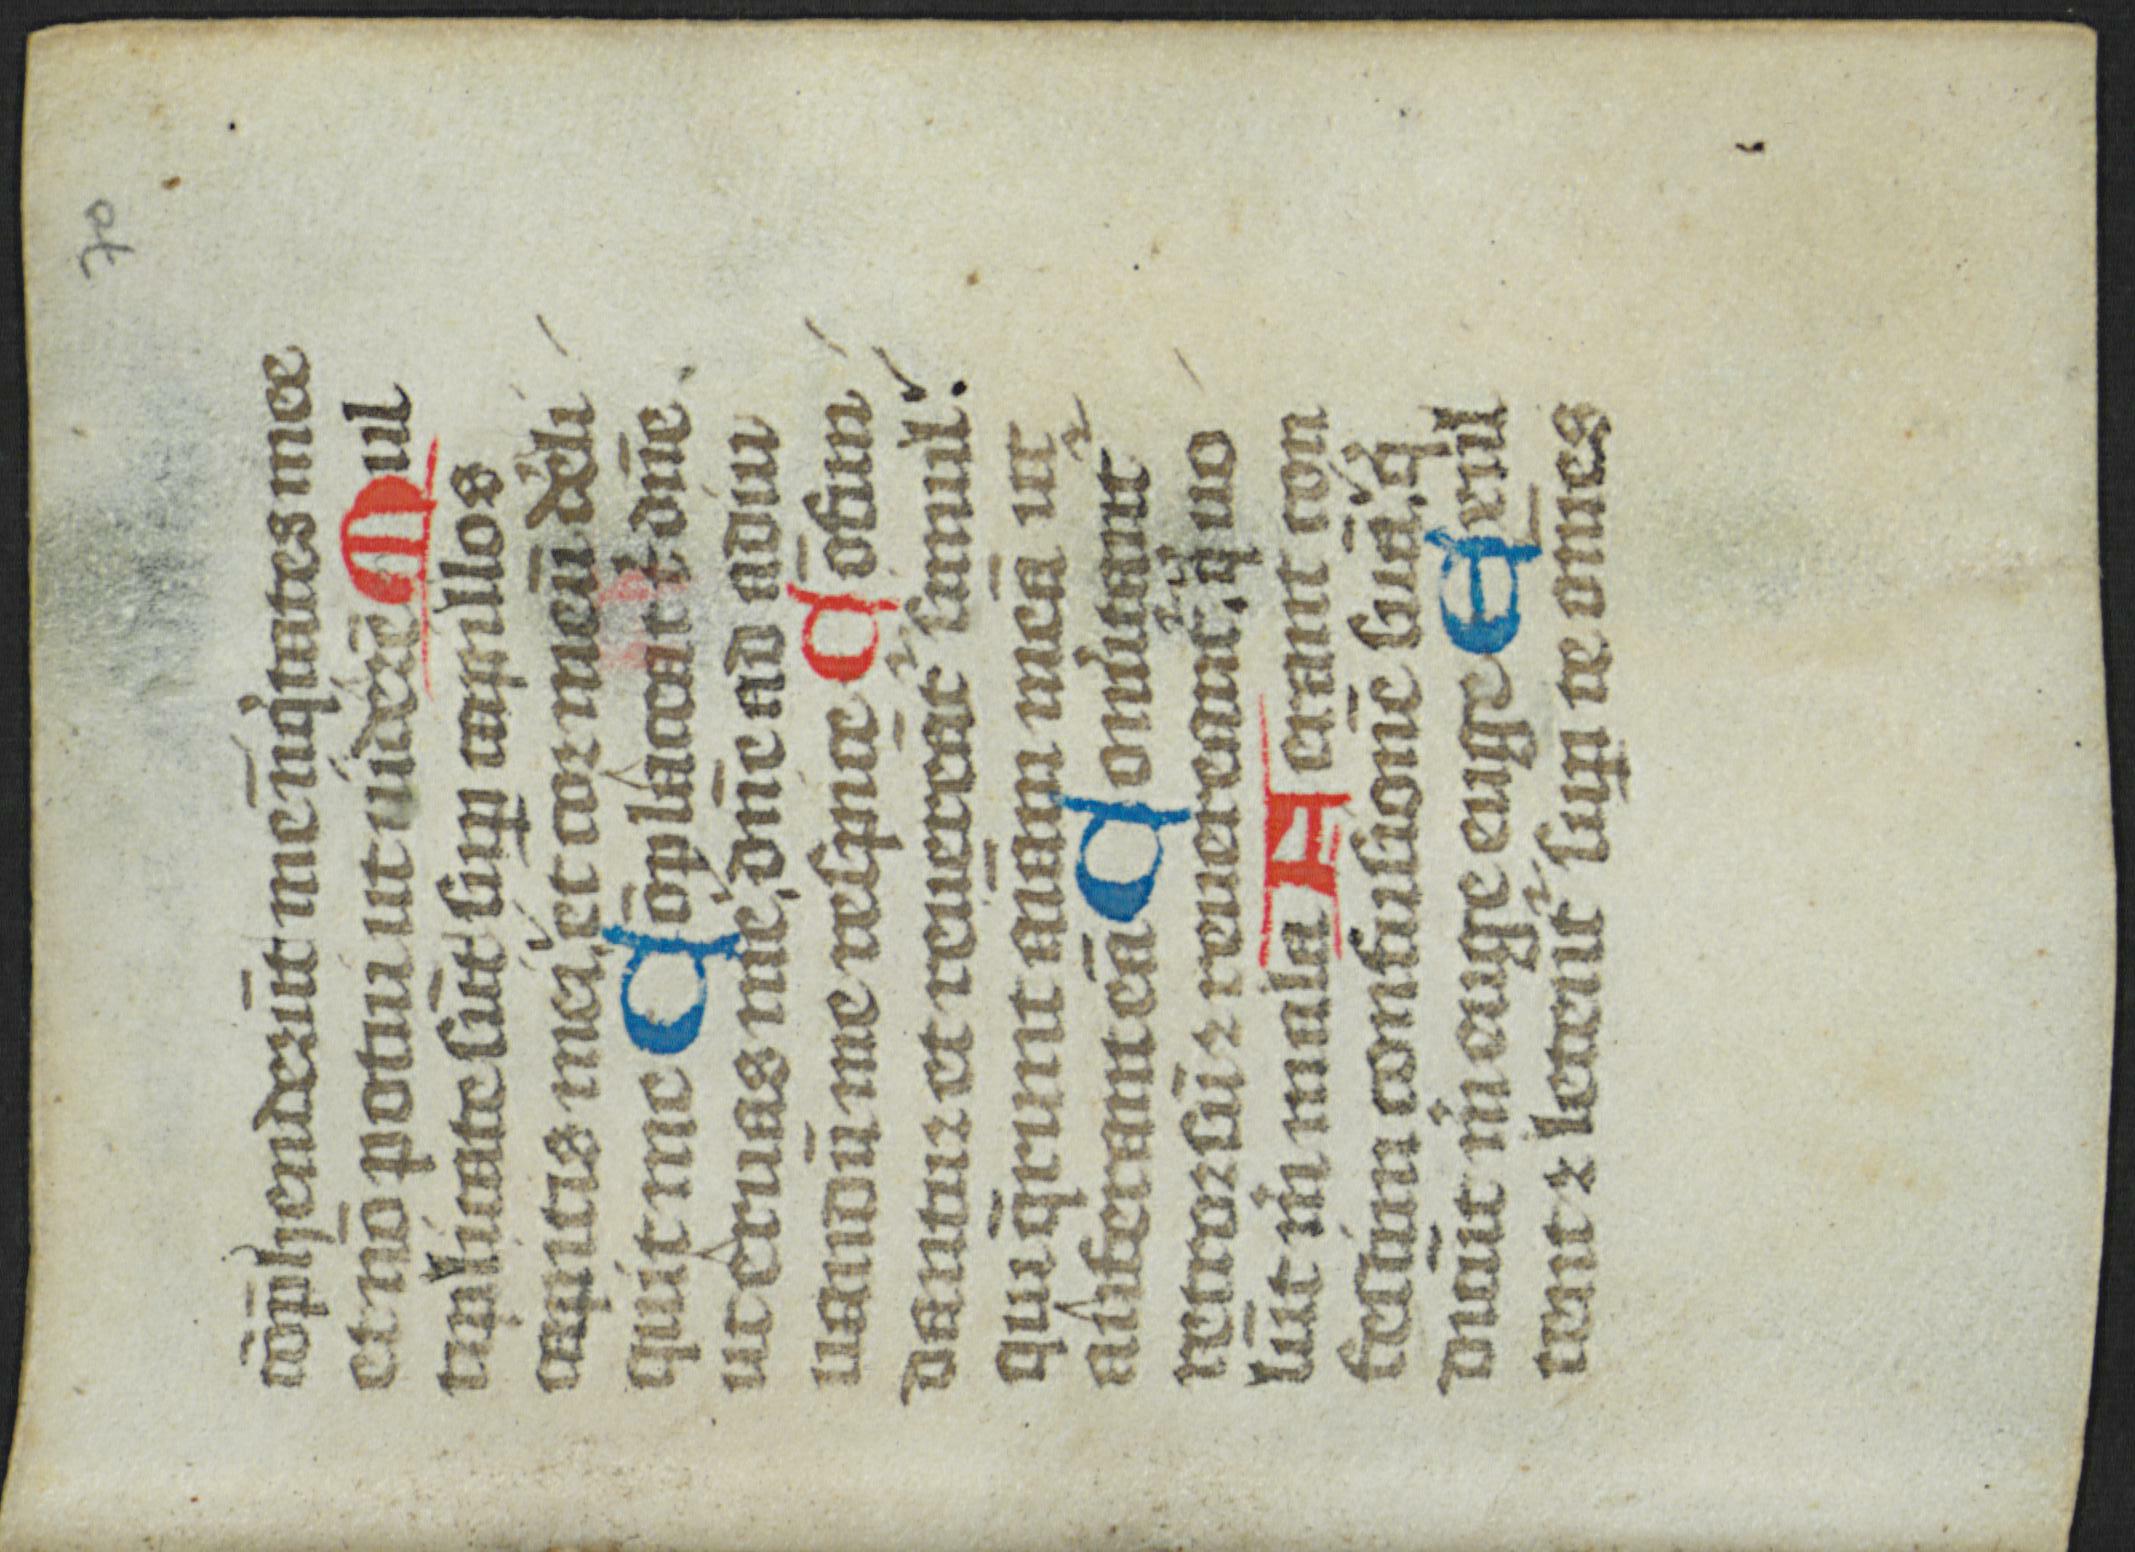 70
cōp̄henderūt me īiq'tates mee
et nō potui ut uiderē Mul
tiplicate sūt sup̱ capillos
capitis mei, et cor meū deli
quit me Cōplaceat t' dn̄e
ut eruas me, dn̄e ad adiu
uandū me respice Cōfun
dantur et reuereāt' simul:
qui q̄runt aīam meā ut
auferant eā Conuertant'
retrorsū ⁊ reuereant', q' uo
lūt m' mala Ferant con
festim confusionē suā, q'
dicūt m' euge euge Exul
tent ⁊ letent' sup̱ te omnes